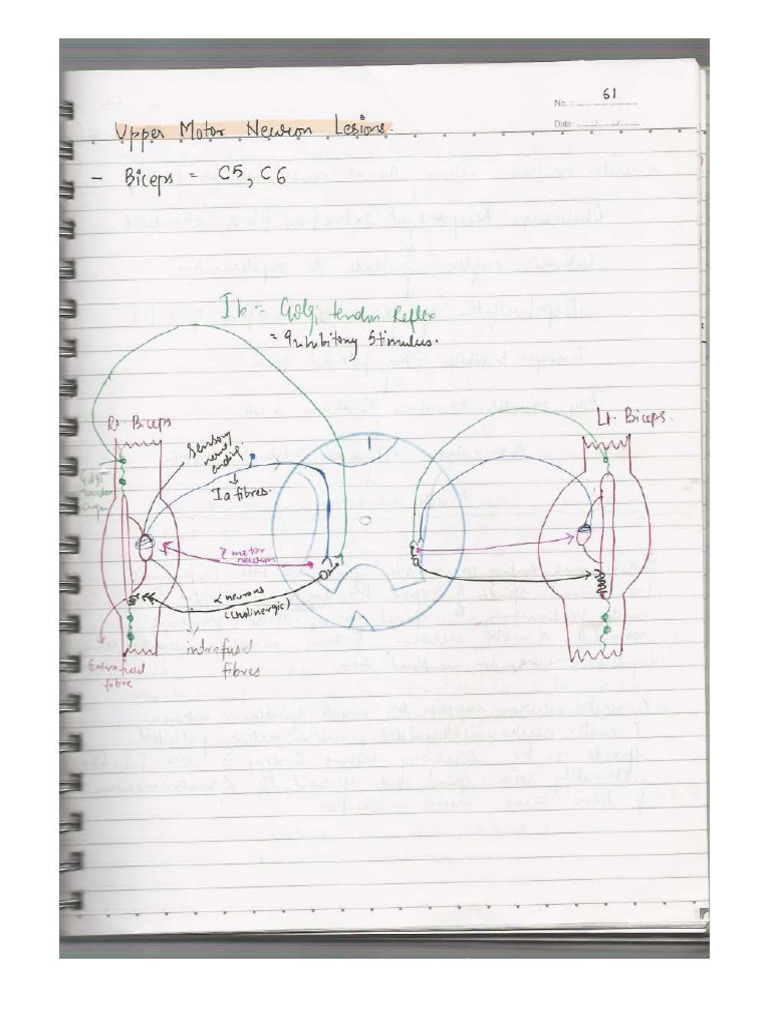 No. : 61
Date :
Upper Motor Neuron Lesions.
- Biceps = C5, C6
Ib = Golgi tendon Reflex
= Inhibitory Stimulus.
Rt. Biceps
Lt. Biceps.
Sensory
nerve
ending.
Ia fibres.
Golgi
Tendon
Organ
γ motor
neuron
α neurons
(Cholinergic)
intrafusal
fibres
Extrafusal
fibre